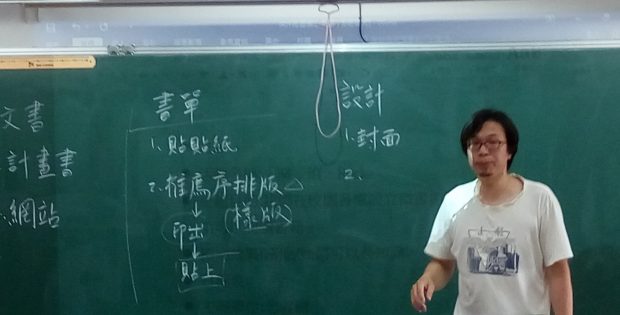 文書
計畫書
網站
書單
1、貼貼紙
2、推薦序排版△
↓
印出 (樣版)
↓
貼上
設計
1、封面
2、